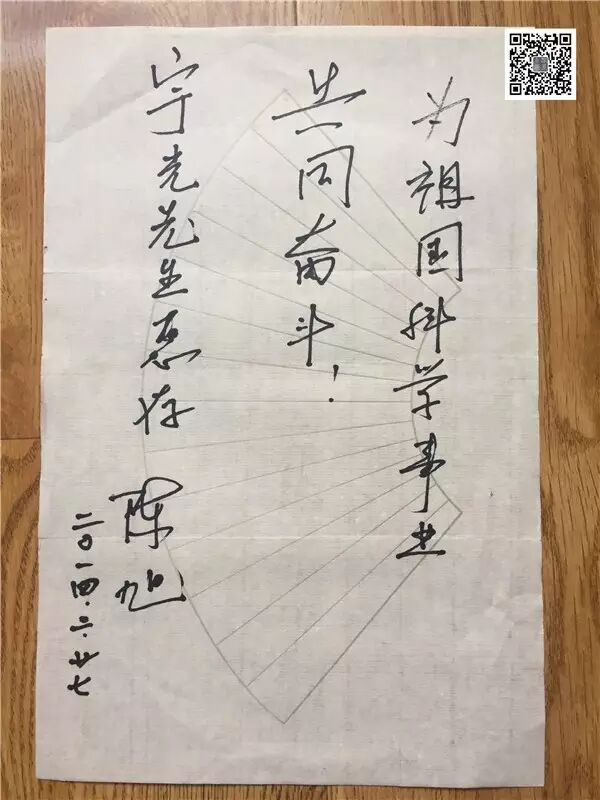 为祖国科学事业
共同奋斗!
宁光先生惠存
陈旭
二〇一四.六.廿七